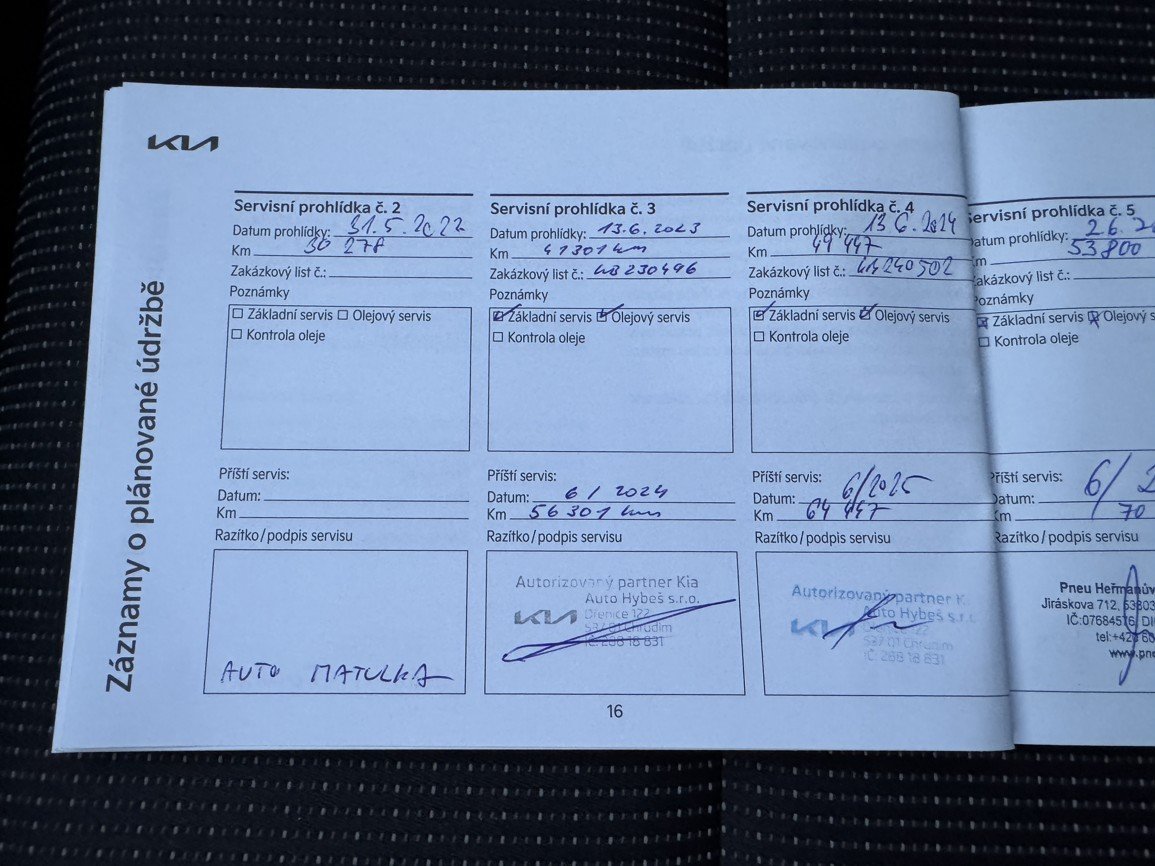 KIA
Záznamy o plánované údržbě
Servisní prohlídka č. 2
Datum prohlídky: 31.5.2022
Km 30 278
Zakázkový list č.:
Poznámky
Základní servis Olejový servis
Kontrola oleje
Příští servis:
Datum:
Km
Razítko/podpis servisu
AUTO MATULKA
Servisní prohlídka č. 3
Datum prohlídky: 13.6.2023
Km 41301 km
Zakázkový list č.: 230496
Poznámky
Základní servis Olejový servis
Kontrola oleje
Příští servis:
Datum: 6/2024
Km 56301 km
Razítko/podpis servisu
Autorizovaný partner Kia
Auto Hybeš s.r.o.
KIA Dřenice 122
537 01 Chrudim
IČ: 288 18 831
Servisní prohlídka č. 4
Datum prohlídky: 13 6. 2024
Km 49 447
Zakázkový list č.: 240502
Poznámky
Základní servis Olejový servis
Kontrola oleje
Příští servis:
Datum: 6/2025
Km 64 447
Razítko/podpis servisu
Autorizovaný partner K
Auto Hybeš s.r.
KIA
537 01 Chrudim
IČ: 288 18 831
Servisní prohlídka č. 5
Datum prohlídky: 2.6.2
Km 53800
Zakázkový list č.:
Poznámky
Základní servis Olejový s
Kontrola oleje
Příští servis:
Datum: 6/2
Km 70
Razítko/podpis servisu
Pneu Heřmanův
Jiráskova 712, 53803
IČ:07684576, DI
tel:+420 60
www.pne
16